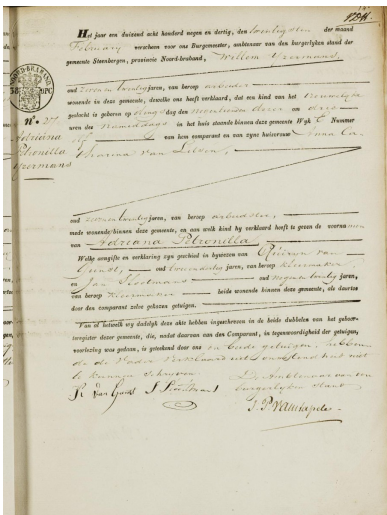 Het jaar een duizend acht honderd negen en dertig, den twintigsten der maand
February verscheen voor ons Burgemeester, ambtenaar van den burgerlyken stand der
gemeente Steenbergen, provincie Noord-braband, Willem Yzermans,
oud zeven en twintig jaren, van beroep arbeider
wonende in deze gemeente, dewelke ons heeft verklaard, dat een kind van het vrouwelyke
geslacht is geboren op dingsdag den negentienden dezer om drie
uren des namiddags in het huis staande binnen deze gemeente Wyk Nummer
van hem comparant en van zyne huisvrouw Anna Ca-
tharina van
N° 27
Adriana
Petronella
Yzermans
oud zeven en twintig jaren, van beroep arbeidster,
mede wonende binnen deze gemeente, en aan welk kind hy verklaard heeft te geven de voornamen
van Adriana Petronella,
Welke aangifte en verklaring zyn geschied in bywezen van van
oud twee en dertig jaren, van beroep kleermaker
en Jan Slootmans oud negen en twintig jaren,
van beroep beide wonende binnen deze gemeente, als daartoe
door den comparant zelve gekozen getuigen.
Van al hetwelk wy dadelyk deze akte hebben ingeschreven in de beide dubbelen van het geboorteregister dezer gemeente, die, nadat daarvan aan den Comparant, in tegenwoordigheid der getuigen,
voorlezing was gedaan, is geteekend door ons en beide getuigen, hebbende
de Vader verklaard uit onkunde niet
te kunnen schryven
De Ambtenaar van den
burgerlyken stand